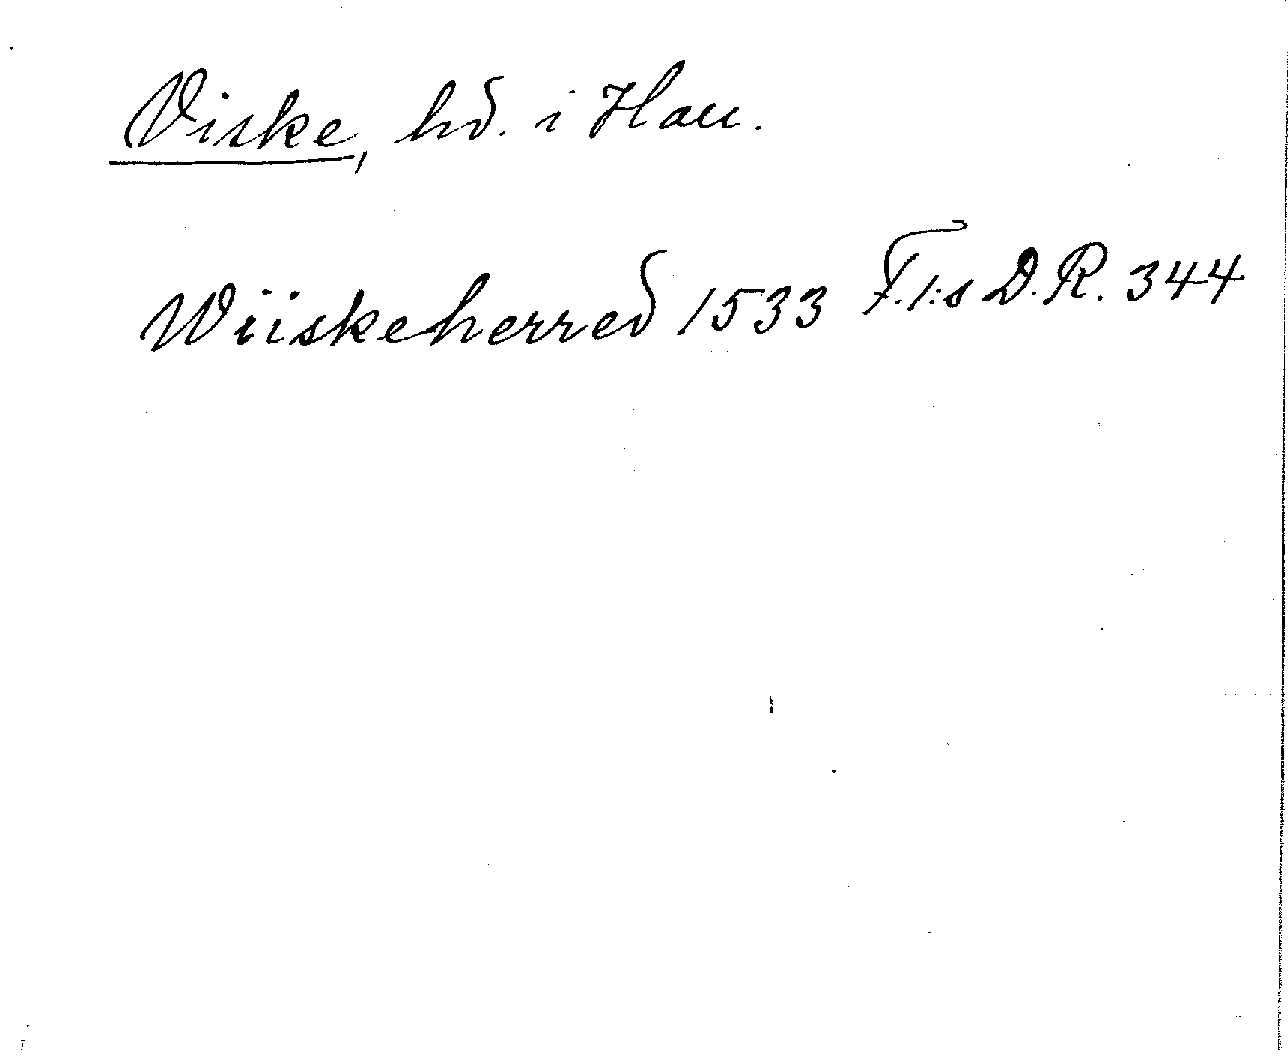 Viske, hd. i Hall.
Wiiskeherred 1533 F.1:s D.R. 344